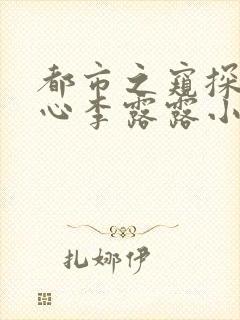 都市之窥探
心李露露小
扎娜伊